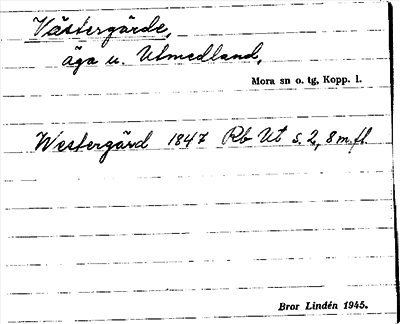 Västergärde,
äga u. Utmedland,
Mora sn o. tg, Kopp. l.
Westergärd 1847 Rb Ut s. 2, 8 m.fl.
Bror Lindén 1945.